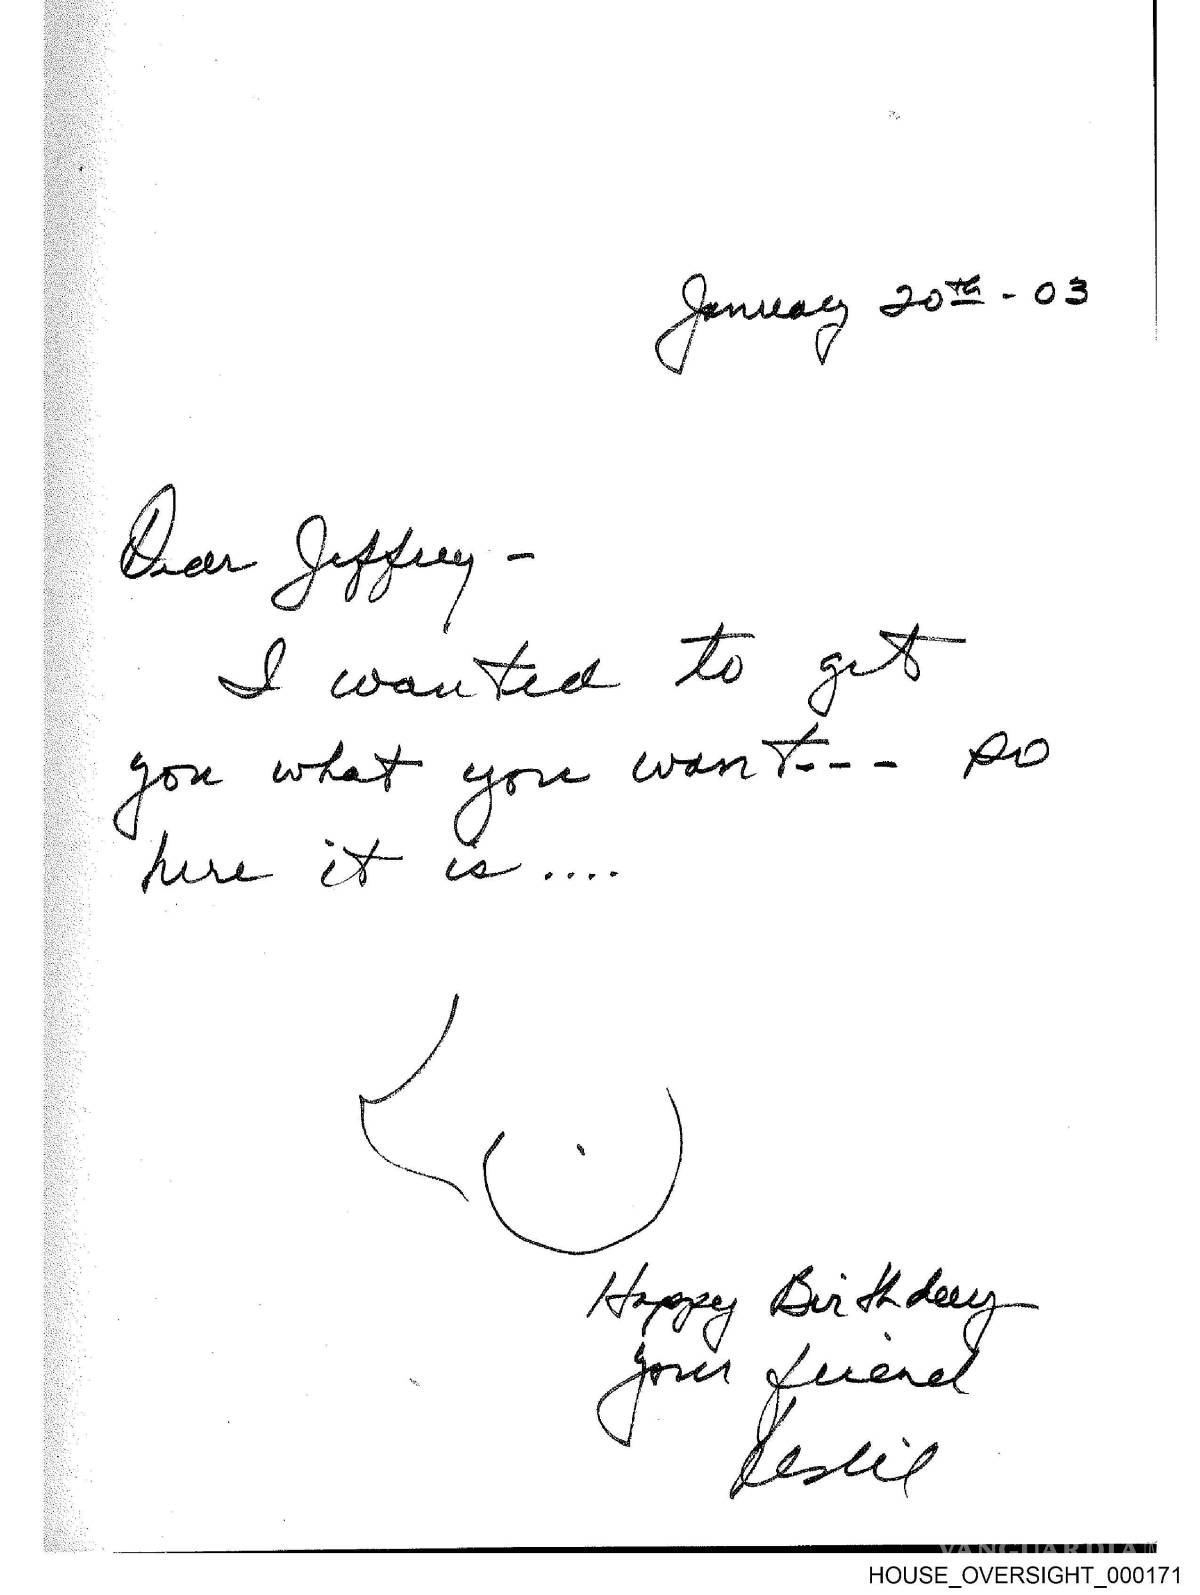 January 20th - 03
Dear Jeffrey -
I wanted to get
you what you want--- so
here it is ....
Happy Birthday
your friend
Leslie
VANGUARDIA
HOUSE_OVERSIGHT_000171